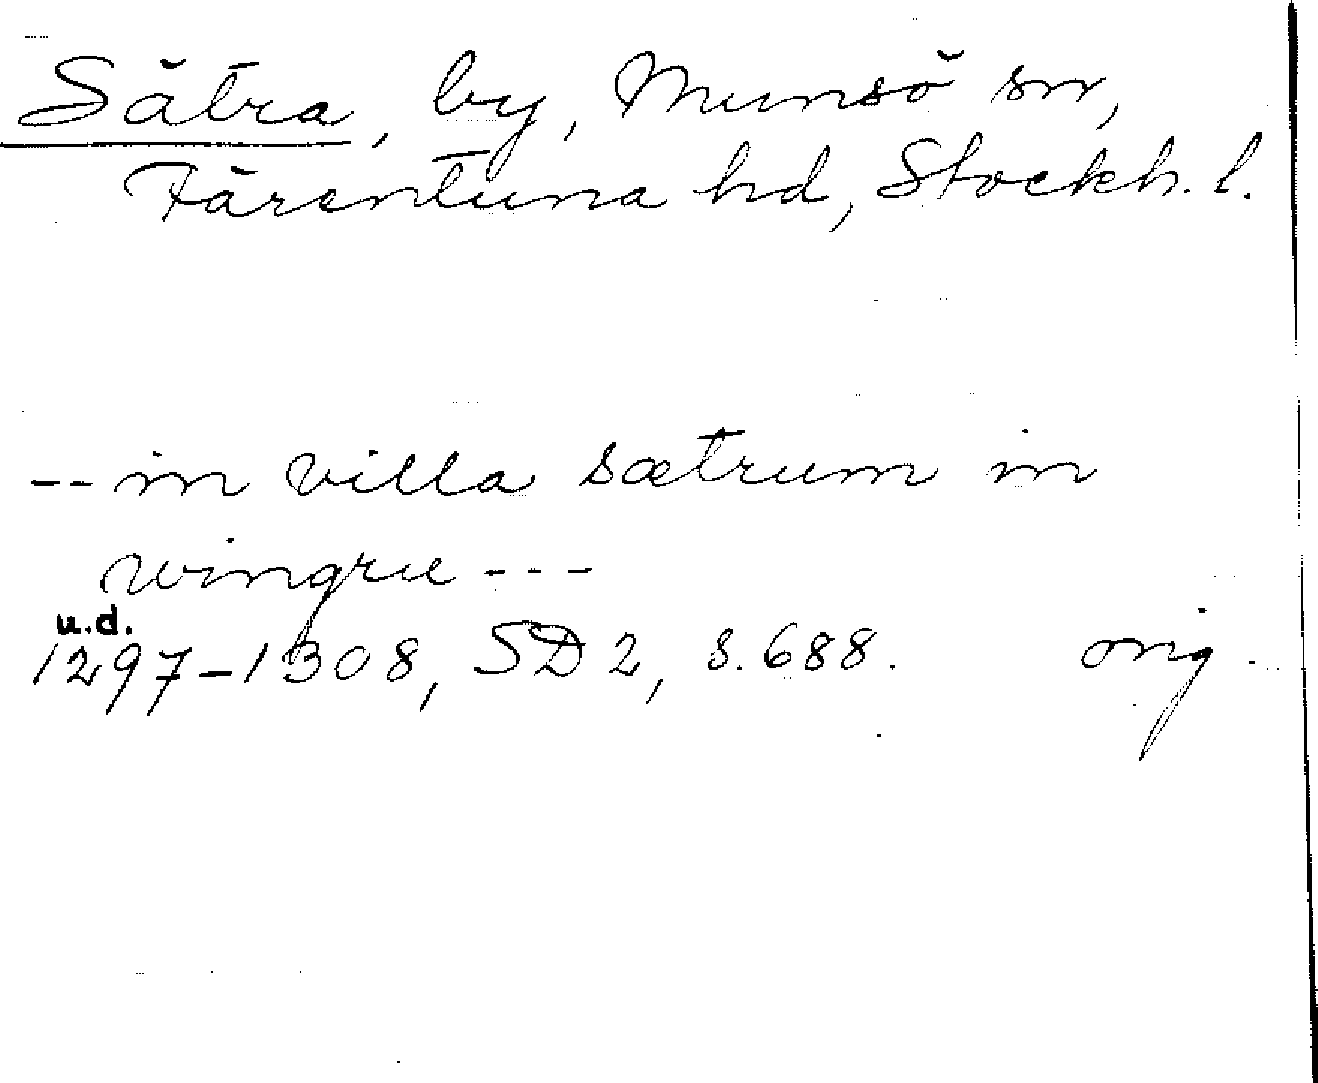 Sätra, by, Munsö sn,
Färentuna hd, Stockh. l.
-- in villa sætrum in
wingru ---
u.d.
1297-1308, SD 2, s. 688. orig.